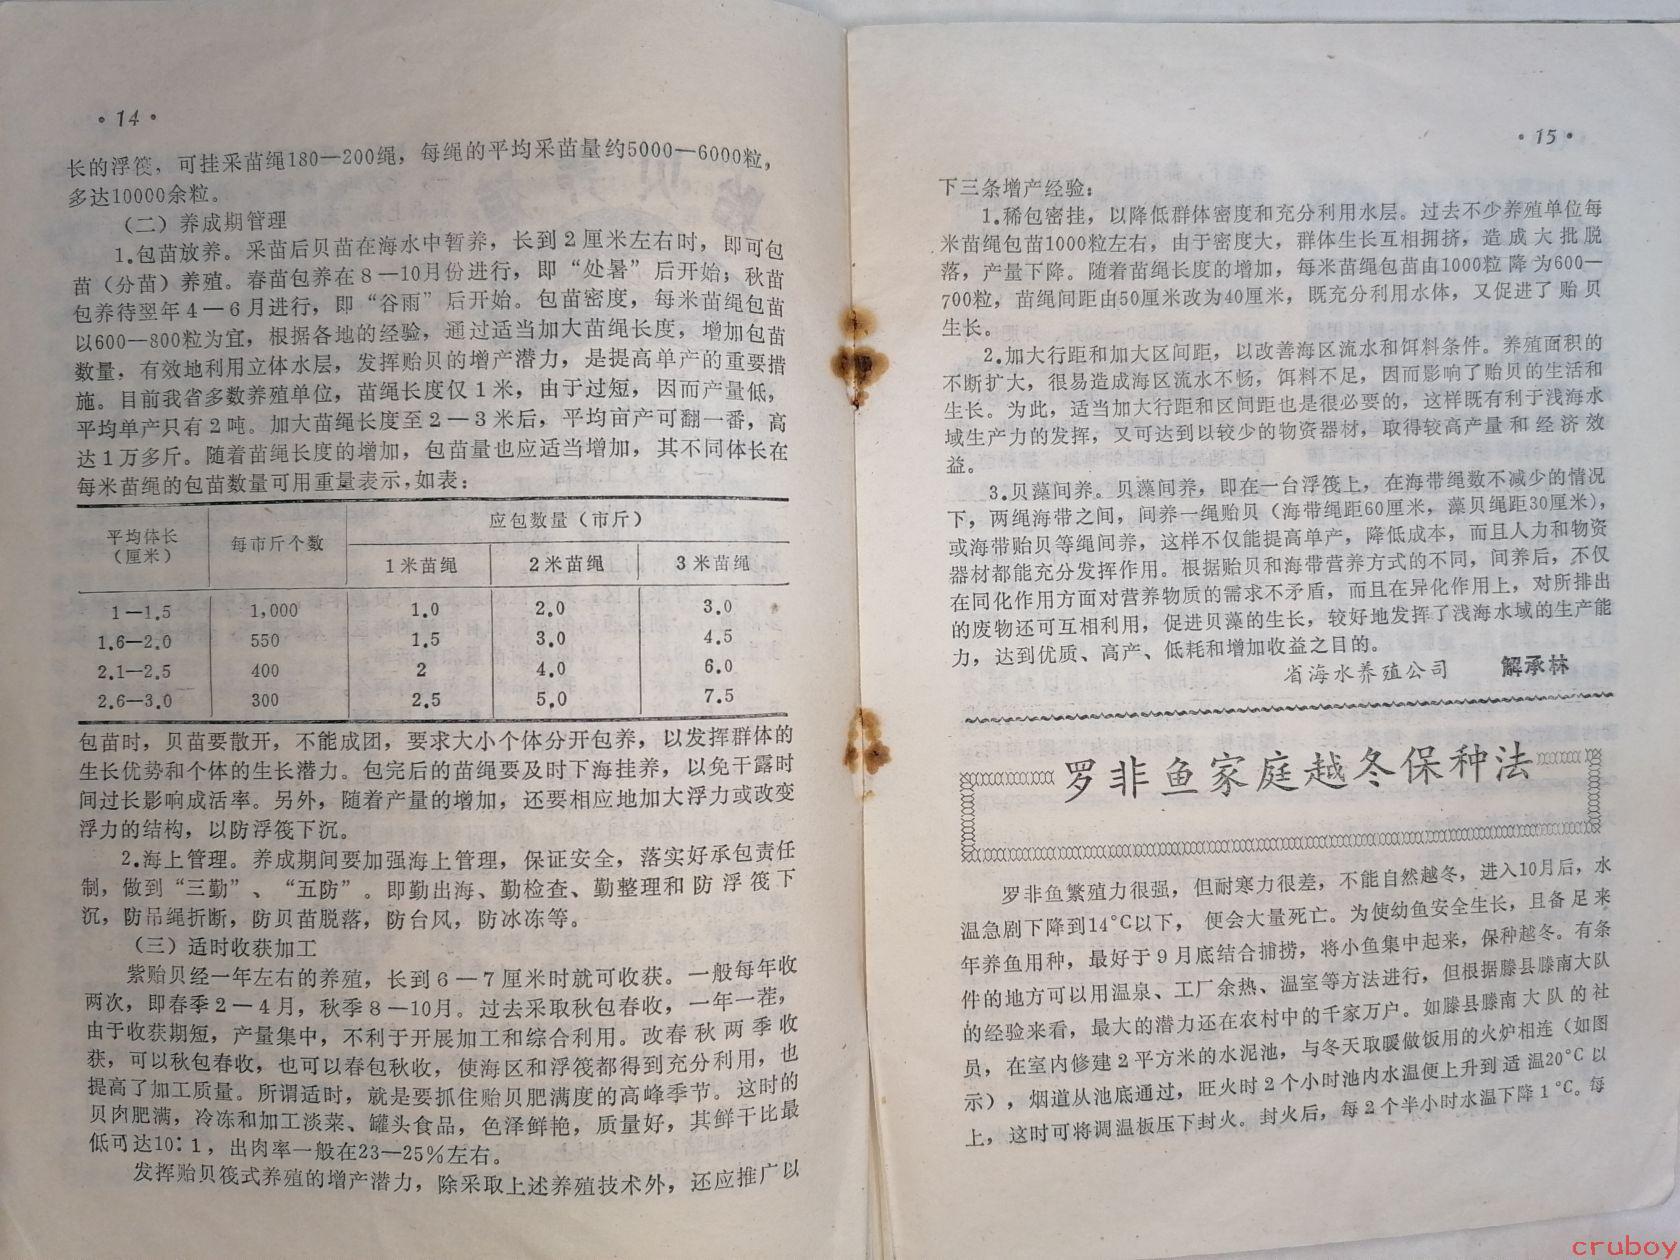 • 14 •
长的浮筏，可挂采苗绳180—200绳，每绳的平均采苗量约5000—6000粒，
多达10000余粒。
（二）养成期管理
1.包苗放养。采苗后贝苗在海水中暂养，长到２厘米左右时，即可包
苗（分苗）养殖。春苗包养在８—10月份进行，即“处暑”后开始；秋苗
包养待翌年４—６月进行，即“谷雨”后开始。包苗密度，每米苗绳包苗
以600—800粒为宜，根据各地的经验，通过适当加大苗绳长度，增加包苗
数量，有效地利用立体水层，发挥贻贝的增产潜力，是提高单产的重要措
施。目前我省多数养殖单位，苗绳长度仅１米，由于过短，因而产量低，
平均单产只有２吨。加大苗绳长度至２—３米后，平均亩产可翻一番，高
达１万多斤。随着苗绳长度的增加，包苗量也应适当增加，其不同体长在
每米苗绳的包苗数量可用重量表示，如表：
平均体长（厘米） 每市斤个数 应包数量（市斤）
1米苗绳 2米苗绳 3米苗绳
1—1.5 1,000 1.0 2.0 3.0
1.6—2.0 550 1.5 3.0 4.5
2.1—2.5 400 2 4.0 6.0
2.6—3.0 300 2.5 5.0 7.5
包苗时，贝苗要散开，不能成团，要求大小个体分开包养，以发挥群体的
生长优势和个体的生长潜力。包完后的苗绳要及时下海挂养，以免干露时
间过长影响成活率。另外，随着产量的增加，还要相应地加大浮力或改变
浮力的结构，以防浮筏下沉。
2.海上管理。养成期间要加强海上管理，保证安全，落实好承包责任
制，做到“三勤”、“五防”。即勤出海、勤检查、勤整理和防浮筏下
沉，防吊绳折断，防贝苗脱落，防台风，防冰冻等。
（三）适时收获加工
紫贻贝经一年左右的养殖，长到６—７厘米时就可收获。一般每年收
两次，即春季２—４月，秋季８—10月。过去采取秋包春收，一年一茬，
由于收获期短，产量集中，不利于开展加工和综合利用。改春秋两季收
获，可以秋包春收，也可以春包秋收，使海区和浮筏都得到充分利用，也
提高了加工质量。所谓适时，就是要抓住贻贝肥满度的高峰季节。这时的
贝肉肥满，冷冻和加工淡菜、罐头食品，色泽鲜艳，质量好，其鲜干比最
低可达10：1，出肉率一般在23—25％左右。
发挥贻贝筏式养殖的增产潜力，除采取上述养殖技术外，还应推广以
• 15 •
下三条增产经验：
1.稀包密挂，以降低群体密度和充分利用水层。过去不少养殖单位每
米苗绳包苗1000粒左右，由于密度大，群体生长互相拥挤，造成大批脱
落，产量下降。随着苗绳长度的增加，每米苗绳包苗由1000粒降为600—
700粒，苗绳间距由50厘米改为40厘米，既充分利用水体，又促进了贻贝
生长。
2.加大行距和加大区间距，以改善海区流水和饵料条件。养殖面积的
不断扩大，很易造成海区流水不畅，饵料不足，因而影响了贻贝的生活和
生长。为此，适当加大行距和区间距也是很必要的，这样既有利于浅海水
域生产力的发挥，又可达到以较少的物资器材，取得较高产量和经济效
益。
3.贝藻间养。贝藻间养，即在一台浮筏上，在海带绳数不减少的情况
下，两绳海带之间，间养一绳贻贝（海带绳距60厘米，藻贝绳距30厘米），
或海带贻贝等绳间养，这样不仅能提高单产，降低成本，而且人力和物资
器材都能充分发挥作用。根据贻贝和海带营养方式的不同，间养后，不仅
在同化作用方面对营养物质的需求不矛盾，而且在异化作用上，对所排出
的废物还可互相利用，促进贝藻的生长，较好地发挥了浅海水域的生产能
力，达到优质、高产、低耗和增加收益之目的。
省海水养殖公司 解承林
罗非鱼家庭越冬保种法
罗非鱼繁殖力很强，但耐寒力很差，不能自然越冬，进入10月后，水
温急剧下降到14℃以下，便会大量死亡。为使幼鱼安全生长，且备足来
年养鱼用种，最好于９月底结合捕捞，将小鱼集中起来，保种越冬。有条
件的地方可以用温泉、工厂余热、温室等方法进行，但根据滕县滕南大队
的经验来看，最大的潜力还在农村中的千家万户。如滕县滕南大队的社
员，在室内修建２平方米的水泥池，与冬天取暖做饭用的火炉相连（如图
示），烟道从池底通过，旺火时２个小时池内水温便上升到适温20℃以
上，这时可将调温板压下封火。封火后，每２个半小时水温下降１℃。每
cruboy